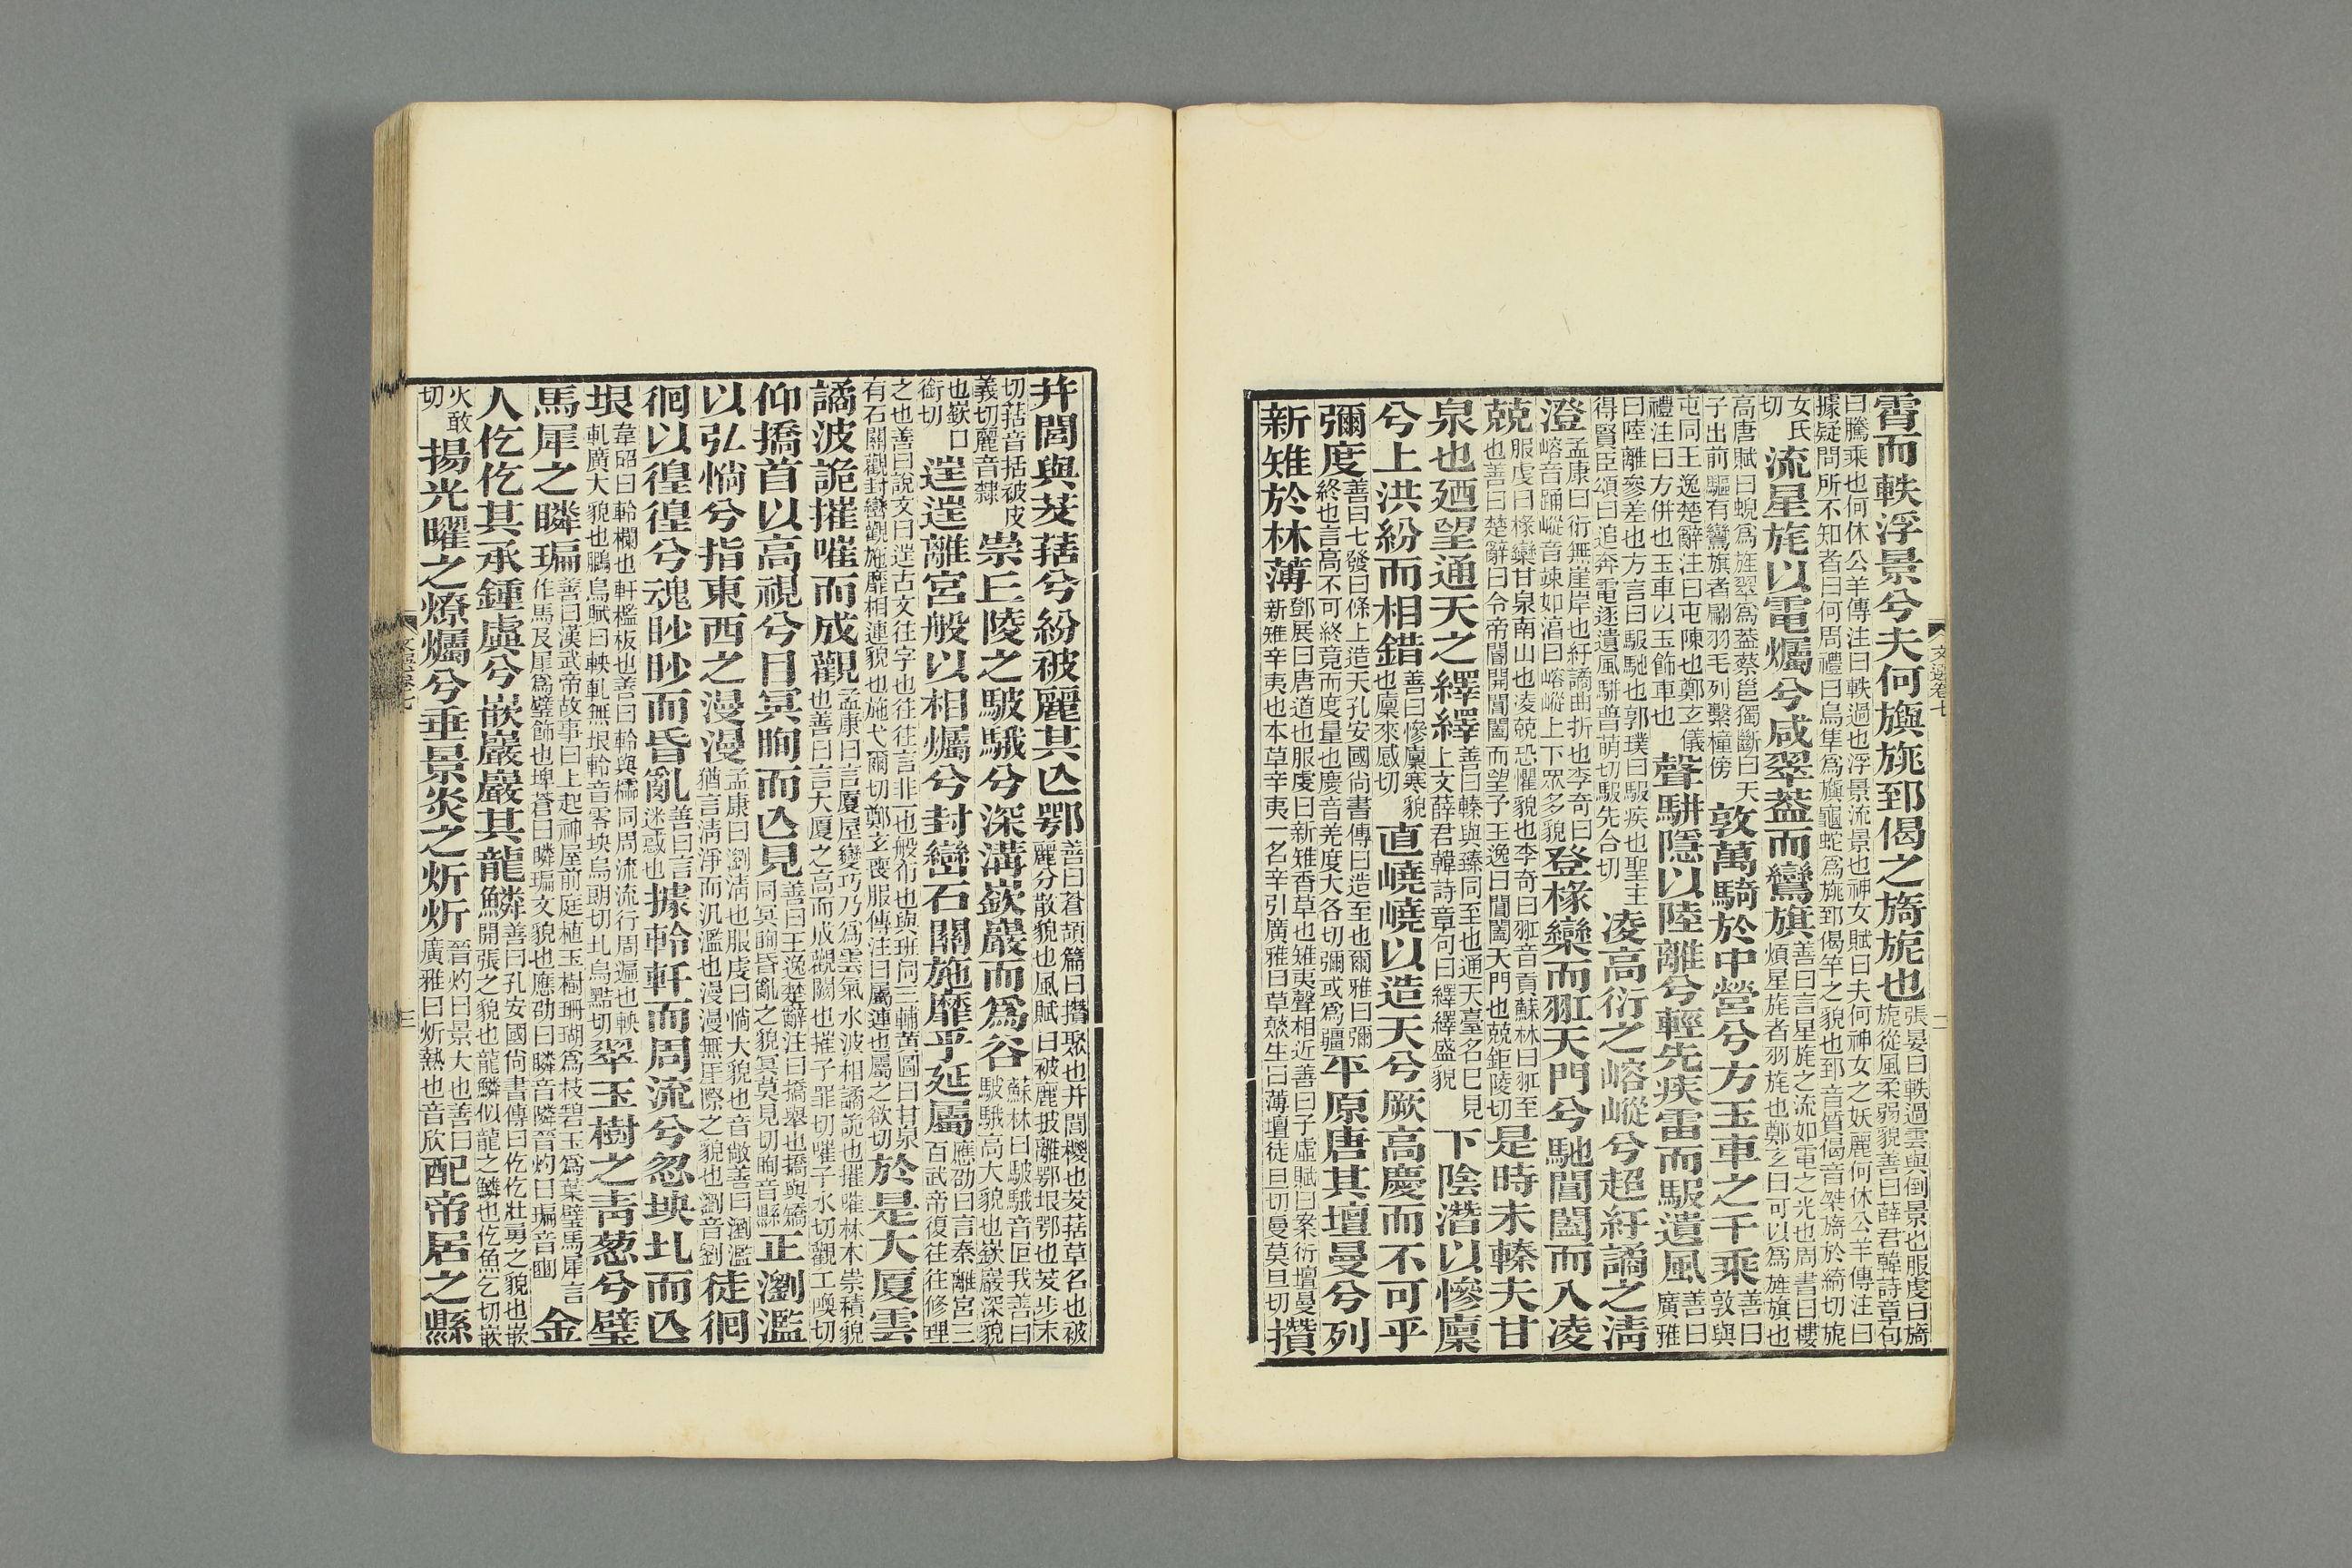 霄而軼浮景兮夫何旟旐郅偈之旖旎也張晏曰軼過雲與倒景也服虔曰旖旎從風柔弱貌善曰薛君韓詩章句
曰騰乘也何休公羊傳注曰軼過也浮景流景也神女賦曰夫何神女之妖麗何休公羊傳注曰據疑問所不知者曰何周禮曰鳥隼爲旟龜蛇爲旐郅偈竿之貌也郅音質偈音桀旖於綺切旎
女氏切流星旄以電爥兮咸翠蓋而鸞旗善曰言星旄之流如電之光也周書曰樓煩星旄者羽旄也鄭玄曰可以爲旌旗也
高唐賦曰蜺爲旌翠爲蓋蔡邕獨斷曰天子出前驅有鸞旗者翮羽毛列繫橦傍敦萬騎於中營兮方玉車之千乘善曰敦與
屯同王逸楚辭注曰屯陳也鄭玄儀禮注曰方併也玉車以玉飾車也聲駍隱以陸離兮輕先疾雷而馺遺風善曰廣雅
曰陸離參差也方言曰馺馳也郭璞曰馺疾也聖主得賢臣頌曰追奔電逐遺風駍普萌切馺先合切凌高衍之嵱嵷兮超紆譎之淸
澄孟康曰衍無崖岸也紆譎曲折也李奇曰嵱音踊嵷音竦如淳曰嵱嵷上下眾多貌登椽欒而羾天門兮馳閶闔而入凌
兢服虔曰椽欒甘泉南山也凌兢恐懼貌也李奇曰羾音貢蘇林曰羾至也善曰楚辭曰令帝閽開閶闔而望予王逸曰閶闔天門也兢鉅陵切是時未轃夫甘
泉也廼望通天之繹繹善曰轃與臻同至也通天臺名已見上文薛君韓詩章句曰繹繹盛貌下陰潛以慘廩
兮上洪紛而相錯善曰慘廩寒貌也廩來感切直嶢嶢以造天兮厥高慶而不可乎
彌度善曰七發曰條上造天孔安國尚書傳曰造至也爾雅曰彌終也言高不可終竟而度量也慶音羌度大各切彌或爲疆平原唐其壇曼兮列
新雉於林薄鄧展曰唐道也服虔曰新雉香草也雉夷聲相近善曰子虛賦曰案衍壇曼新雉辛夷也本草辛夷一名辛引廣雅曰草藂生曰薄壇徒旦切曼莫旦切攢
并閭與茇葀兮紛被麗其亾鄂善曰蒼頡篇曰攢聚也并閭椶也茇葀草名也被麗分散貌也風賦曰被麗披離鄂垠鄂也茇步末
切葀音括被皮義切麗音隸崇丘陵之駊騀兮深溝嶔巖而爲谷蘇林曰駊騀音叵我善曰駊騀高大貌也嶔巖深貌
也嶔口銜切𨓹𨓹離宮般以相爥兮封巒石關施靡乎延屬應劭曰言秦離宮三百武帝復往往修理
之也善曰說文曰𨓹古文往字也往往言非一也般布也與班同三輔黃圖曰甘泉有石關觀封巒觀施靡相連貌也施弋爾切鄭玄喪服傳注曰屬連也屬之欲切於是大厦雲
譎波詭摧嗺而成觀孟康曰言厦屋變巧乃爲雲氣水波相譎詭也摧嗺林木崇積貌也善曰言大厦之高而成觀闕也摧子罪切嗺子水切觀工喚切
仰撟首以高視兮目冥眴而亾見善曰王逸楚辭注曰撟舉也撟與矯同冥眴昏亂之貌冥莫見切眴音縣正瀏濫
以弘惝兮指東西之漫漫孟康曰瀏淸也服虔曰惝大貌也音敞善曰瀏濫猶言淸淨而汎濫也漫漫無厓際之貌也瀏音劉徒徊
徊以徨徨兮魂眇眇而昏亂善曰言迷惑也據軨軒而周流兮忽坱圠而亾
垠韋昭曰軨欄也軒檻板也善曰軨與櫺同周流流行周遍也坱圠廣大貌也鵬鳥賦曰坱圠無垠軨音零坱烏朗切圠烏黠切翠玉樹之靑葱兮璧
馬犀之瞵㻞善曰漢武帝故事曰上起神屋前庭植玉樹珊瑚爲枝碧玉爲葉璧馬犀言作馬及犀爲璧飾也埤蒼曰瞵㻞文貌也應劭曰瞵音隣晉灼曰㻞音豳金
人仡仡其承鍾虡兮嵌巖巖其龍鱗善曰孔安國尚書傳曰仡仡壯勇之貌也嵌開張之貌也龍鱗似龍之鱗也仡魚乞切嵌
火敢切揚光曜之燎爥兮垂景炎之炘炘晉灼曰景大也善曰廣雅曰炘熱也音欣配帝居之縣
文選卷七
二
三